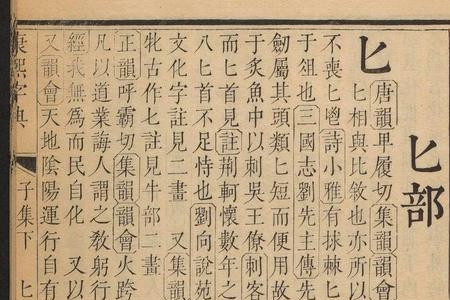 匕部
匕 唐韻卑履切集韻韻會
匕相與比敘也亦所以
不喪匕鬯詩小雅有捄棘匕
于俎也三國志劉先主傳先
劒屬其頭類匕短而便用故
于炙魚中以刺吳王僚刺客
而匕首見註荆軻懷數年之
八匕首不足恃也劉向說苑
文化字註見二畫 又集韻
牝古作匕註見牛部二畫
正韻呼霸切集韻韻會火跨
凡以道業誨人謂之敎躬行
經我無爲而民自化 又以
又韻會天地隂陽運行自有
康熙字典 子集下 匕